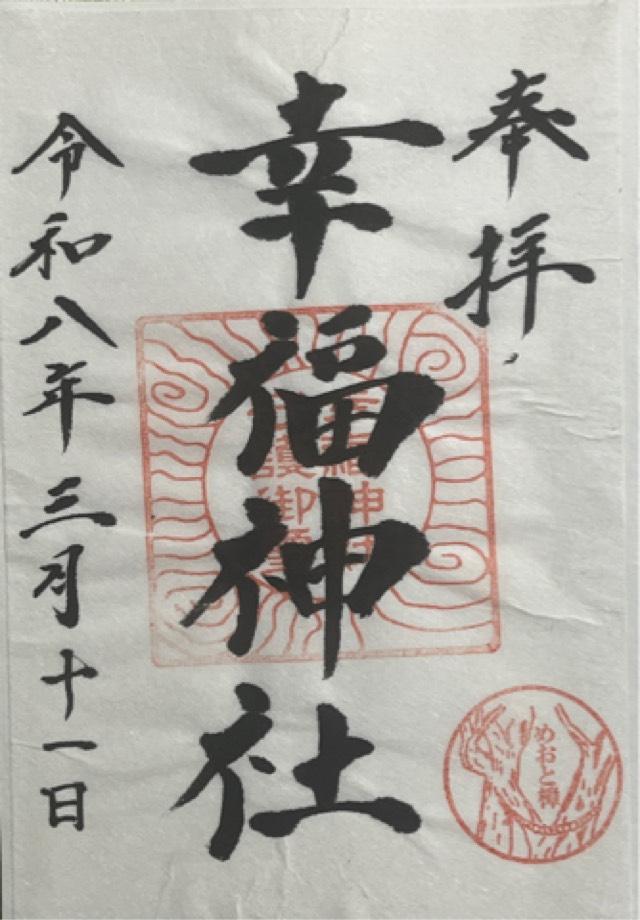 奉拝
幸福神社
令和八年三月十一日
めおと欅